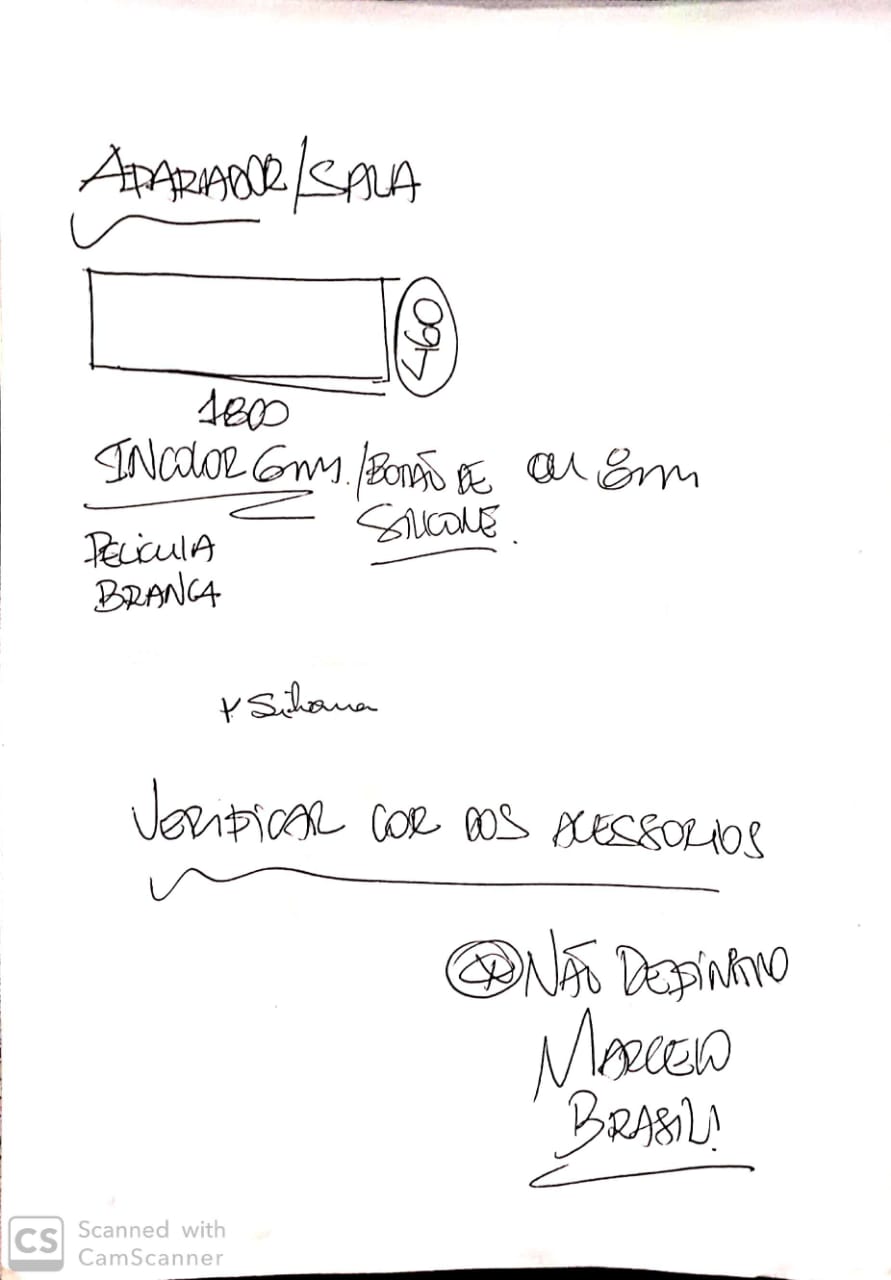 APARADOR/SALA
460
1800
INCOLOR 6mm. /BOTÃO DE ou 8mm
SILICONE.
PELICULA
BRANCA
+ Silvana
VERIFICAR COR DOS ACESSORIOS
NÃO DEFINIDO
MARCELO
BRASIL!
CS Scanned with
CamScanner